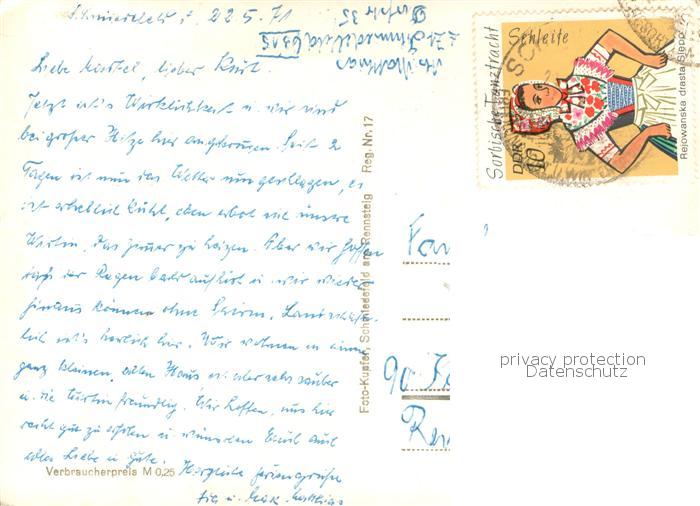 Schmiedefeld, 22.5.71
Liebe lieber Kurt.
Jetzt ist's Wirklichkeit u. wir sind
bei großer Hitze hier angekommen. Seit 2
Tagen ist nun das Wetter umgeschlagen, es
ist erheblich kühl, eben erbot sich unsere
Wirtin, das Zimmer zu heizen. Aber wir hoffen
daß der Regen bald aufhört u. wir wieder
hinaus können ohne Schirm. Landschaft-
lich ist's herrlich hier. Wir wohnen in einem
ganz kleinen, alten Haus es aber sehr sauber
u. die Wirtin freundlich. Wir hoffen, uns hier
recht gut zu erholen u. wünschen Euch auch
alles Liebe u. Gute. Herzliche Feriengrüße
u.
Verbraucherpreis M 0,25
Foto-Kupfer, Schmiedefeld am Rennsteig Reg. Nr. 17
Sorbische Tanztracht
Schleife
DDR 10
Rejowanska drasta Slepo
Fam
90
privacy protection
Datenschutz